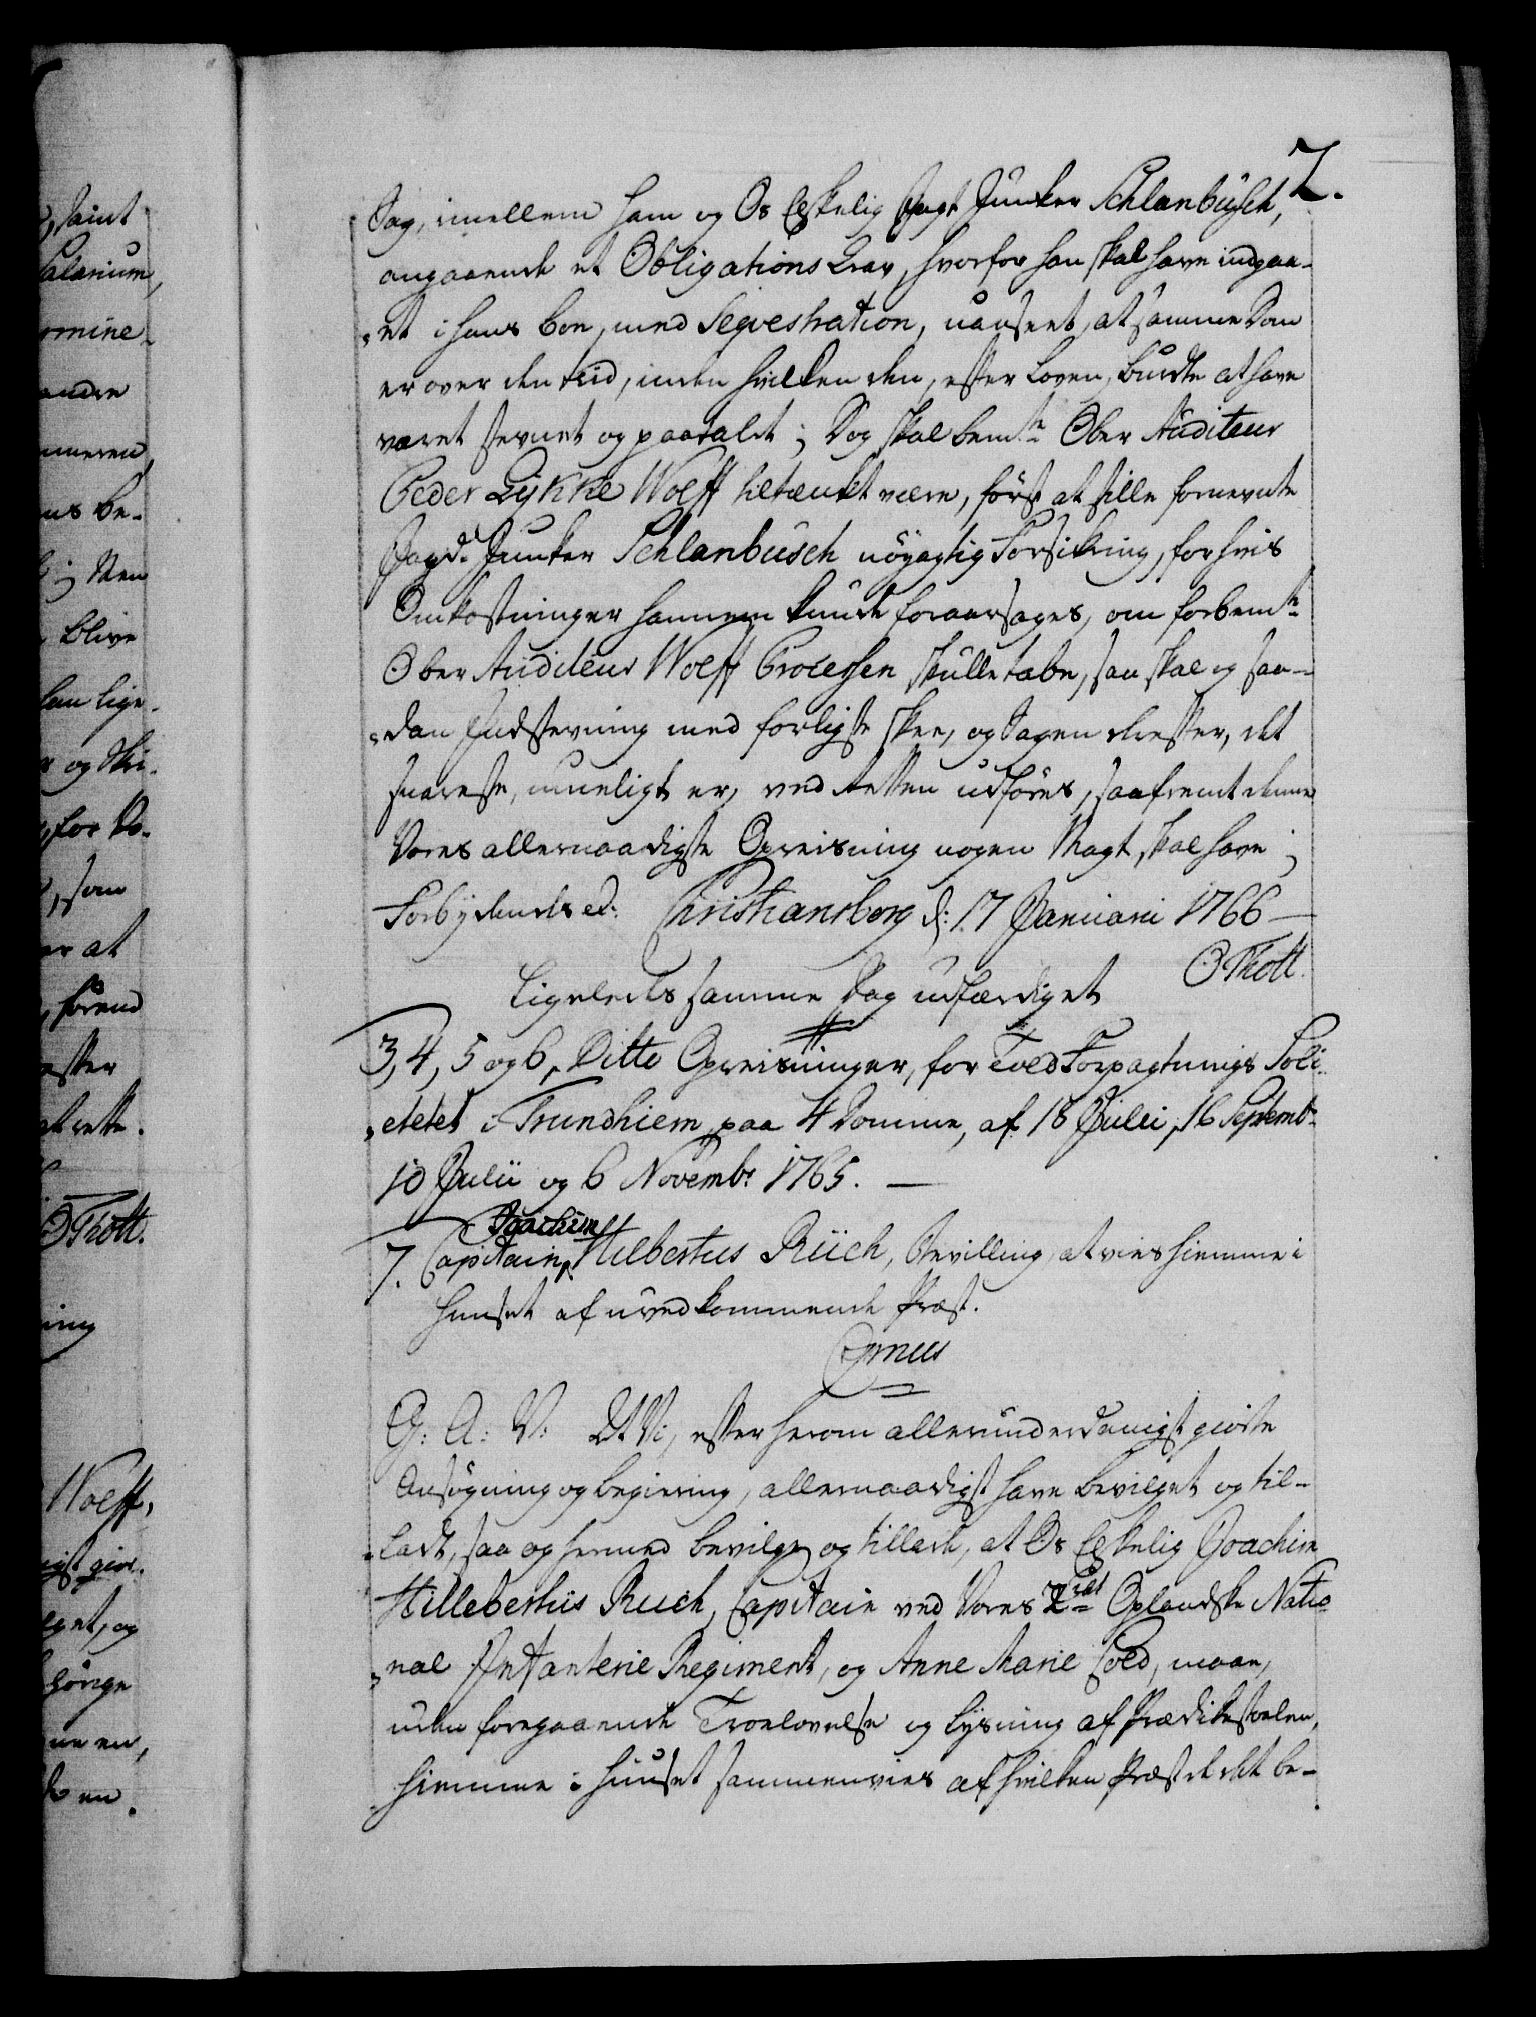 2.
Sag, imellem ham og Os Elskelig Jagt Junker Schlanbusch,
angaaende et Obligations Krav, hvorfor han skal have indgaa-
et i hans Boe, med Seqvestration, uanseet, at samme Dom
er over den tid, inden hvilken den, efter Loven, burdte at have
været stevnet og paatalet; Dog skal bemte Ober Auditeur
Peder Lykke Wolff tiltænkt være, først at stille fornevnte
Jagd Junker Schlanbusch nöyagtig Forsikring, for hvis
Omkostninger hannem kunde foraarsages, om forbemte
Ober Auditeur Wolff Processen skulle tabe, saa skal og saa-
dan Indstevning med forligste skee, og Sagen derefter, det
snareste, mueligt er, ved Retten udføres, saafremt denne
Vores allernaadigste Opreisning nogen Magt skal have;
Forbydendes ed: Christiansborg d: 17 Januarii 1766
O Thott.
Ligeledes samme Dag udfærdiget
3, 4, 5 og 6, Ditto Opreisninger, for Told Forpagtnings Soci-
etetet i Trundhiem paa 4 Domme, af 18 Julii, 16 Septembr
10 Julii og 6 Novembr 1765.
Joachim
7. Capitain Hilbertus Rüch, Bevilling at vies hiemme i
Huuset af uvedkommende Præst.
G: A: V: At Vi, efter herom allerunderdanigst giorte
Ansøgning og begiering, allernaadigst have bevilget og til-
ladt, saa og hermed bevilge og tillade, at Os Elskelig Joachim
Hillebertus Ruch, Capitain ved Vores 2det Oplandske Natio-
nal Infanterie Regiment, og Anne Marie Cold, maae,
uden foregaaende Troelovelse og Lysning af Prædikestolen,
hiemme i Huuset sammenvies af hvilken Præst de det be-